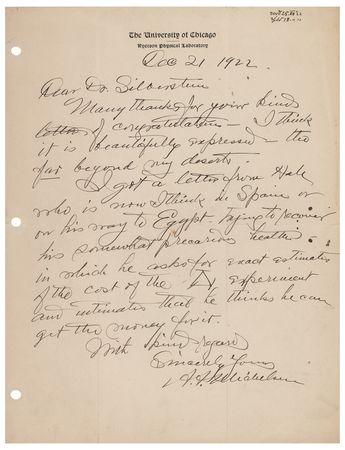 The University of Chicago
Ryerson Physical Laboratory
Dec 21 1922.
Dear Dr. Silberstein
Many thanks for your kind
letter of congratulation — I think
it is beautifully expressed — tho
far beyond my deserts.
I got a letter from Hale
who is now I think in Spain or
on his way to Egypt trying to recover
his somewhat precarious health —
in which he asks for exact estimates
of the cost of the experiment
and intimates that he thinks he can
get the money for it.
With kind regards
Sincerely Yours
A. A. Michelson